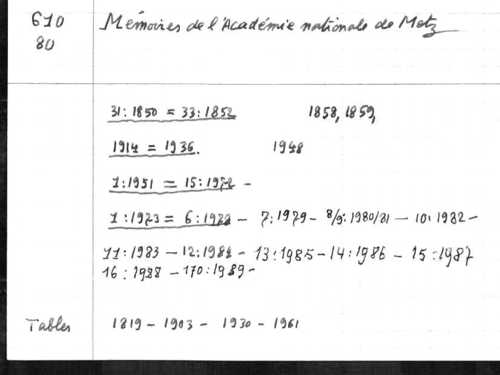 610 Mémoires de l'Académie nationale de Metz
80
31:1850 = 33:1852 1858, 1859,
1914 = 1936. 1948
1:1951 = 15:1972 -
1:1973 = 6:1978 - 7:1979 - 8/9:1980/81 - 10:1982 -
11:1983 - 12:1984 - 13:1985 - 14:1986 - 15:1987
16:1988 - 170:1989 -
Tables 1819 - 1903 - 1930 - 1961